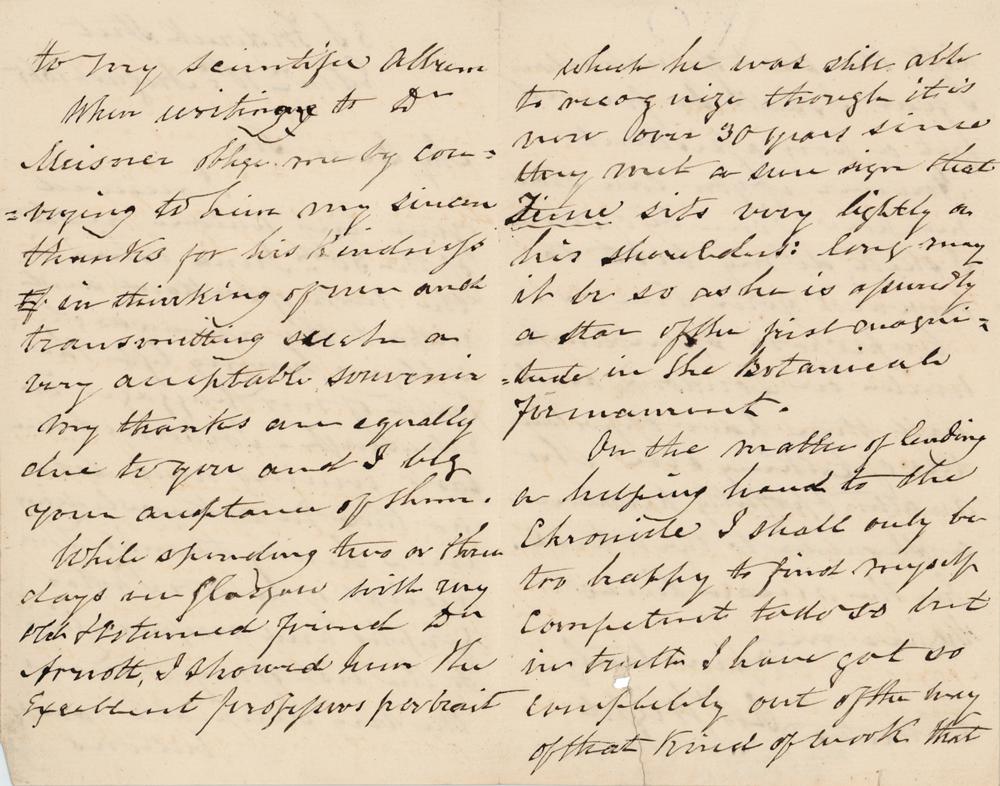 to my scientific Album
When writing to Dr
Meisner oblige me by con=
=veying to him my sincere
thanks for his kindness
in thinking of me and
transmitting such a
very acceptable souvenir
My thanks are equally
due to you and I beg
your acceptance of them.
While spending two or three
days in Glasgow with my
old & esteemed friend Dr
Arnott, I showed him the
Excellent professors portrait
which he was still able
to recognize though it is
now over 30 years since
they met a sure sign that
Time sits very lightly on
his shoulders: long may
it be so as he is assuredly
a star of the first magni=
=tude in the Botanical
firmament.
On the matter of lending
a helping hand to the
Chronicle I shall only be
too happy to find myself
competent to do so but
in truth I have got so
completely out of the way
of that kind of work that